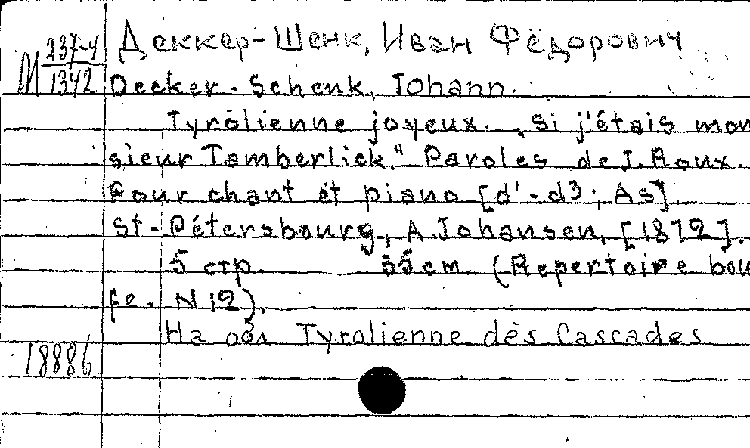 М 237-4/1342
Деккер-Шенк, Иван Фёдорович
Decker-Schenk, Johann.
Tyrolienne joyeux. „Si j'étais mon
sieur Tamberlick." Paroles de J. Roux.
Pour chant et piano [d'-d3; As].
St-Pétersbourg, A. Johansen, [1872].
5 стр. 35 cm. (Repertoire bou
fe. N 12).
На обл Tyrolienne des Cascades
18886